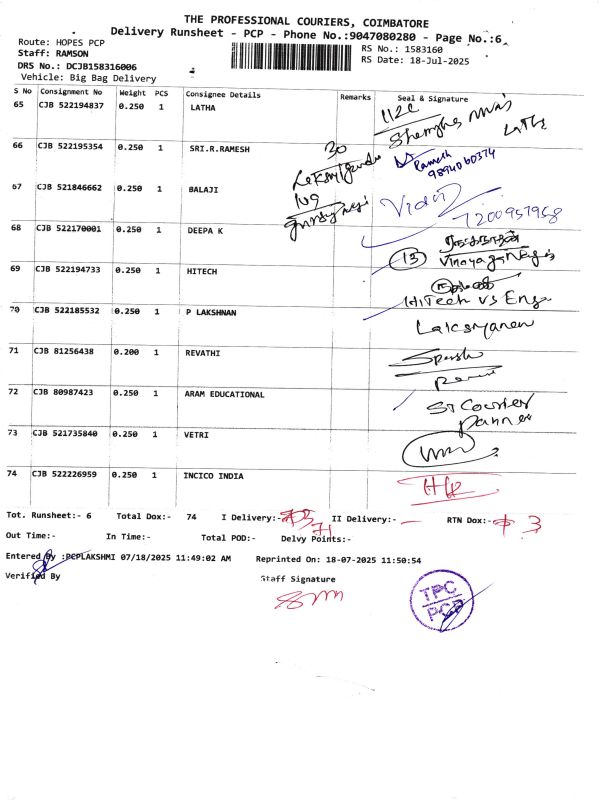 THE PROFESSIONAL COURIERS, COIMBATORE
Delivery Runsheet - PCP - Phone No.:9047080280 - Page No.:6
Route: HOPES PCP
RS No.: 1583160
Staff: RAMSON
RS Date: 18-Jul-2025
DRS No.: DCJB158316006
Vehicle: Big Bag Delivery
S No Consignment No Weight PCS Consignee Details Remarks Seal & Signature
65 CJB 522194837 0.250 1 LATHA
112C
Latha
66 CJB 522195354 0.250 1 SRI.R.RAMESH
30
Ramesh
9894060374
67 CJB 521846662 0.250 1 BALAJI
109
7200957958
68 CJB 522170001 0.250 1 DEEPA K
13
69 CJB 522194733 0.250 1 HITECH
HiTech vs Engg
70 CJB 522185532 0.250 1 P LAKSHNAN
71 CJB 81256438 0.200 1 REVATHI
72 CJB 80987423 0.250 1 ARAM EDUCATIONAL
ST Courier
73 CJB 521735840 0.250 1 VETRI
74 CJB 522226959 0.250 1 INCICO INDIA
Tot. Runsheet:- 6 Total Dox:- 74 I Delivery:- 71 II Delivery:- — RTN Dox:- 3
Out Time:- In Time:- Total POD:- Delvy Points:-
Entered By :PCPLAKSHMI 07/18/2025 11:49:02 AM Reprinted On: 18-07-2025 11:50:54
Verified By Staff Signature
TPC
PCP